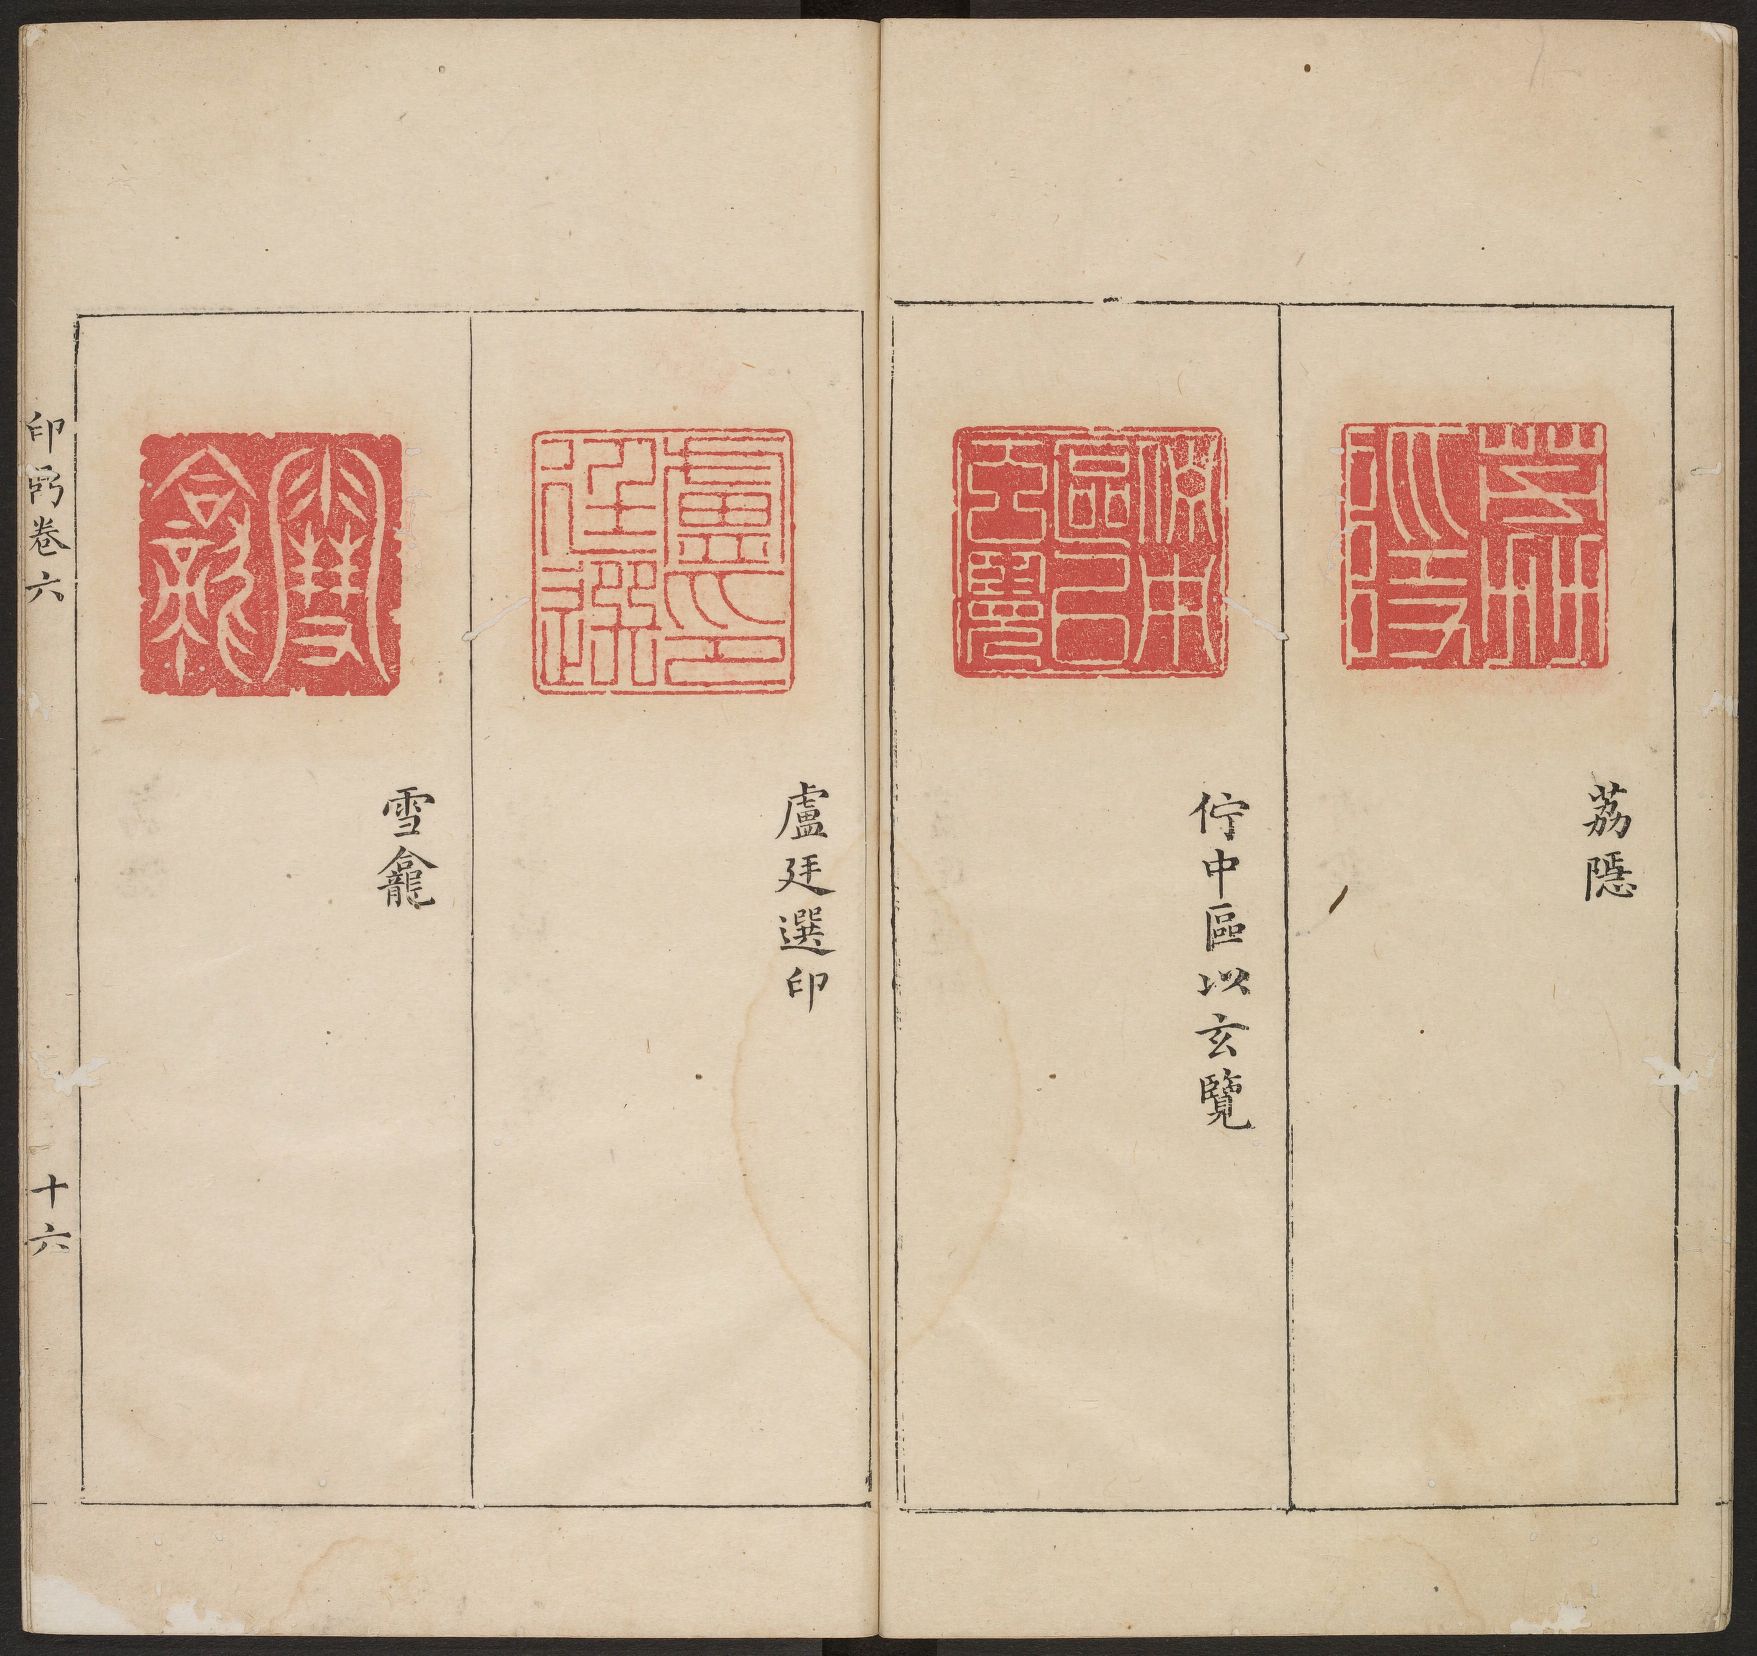 荔隱
佇中區以玄覽
盧廷選印
雪龕
印 卷六
十六